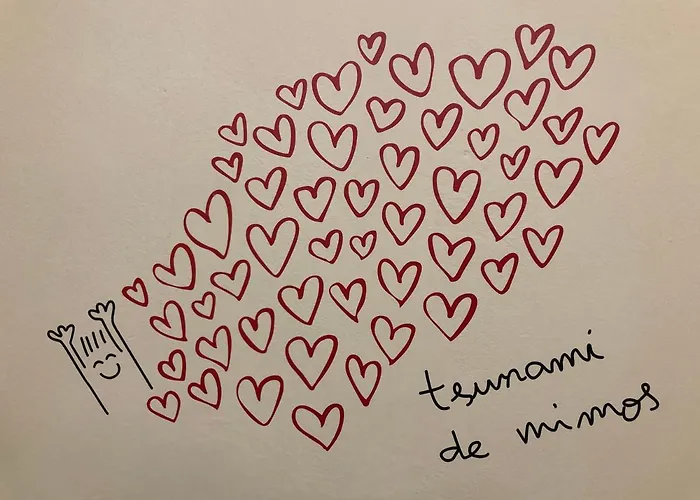 tsunami
de mimos